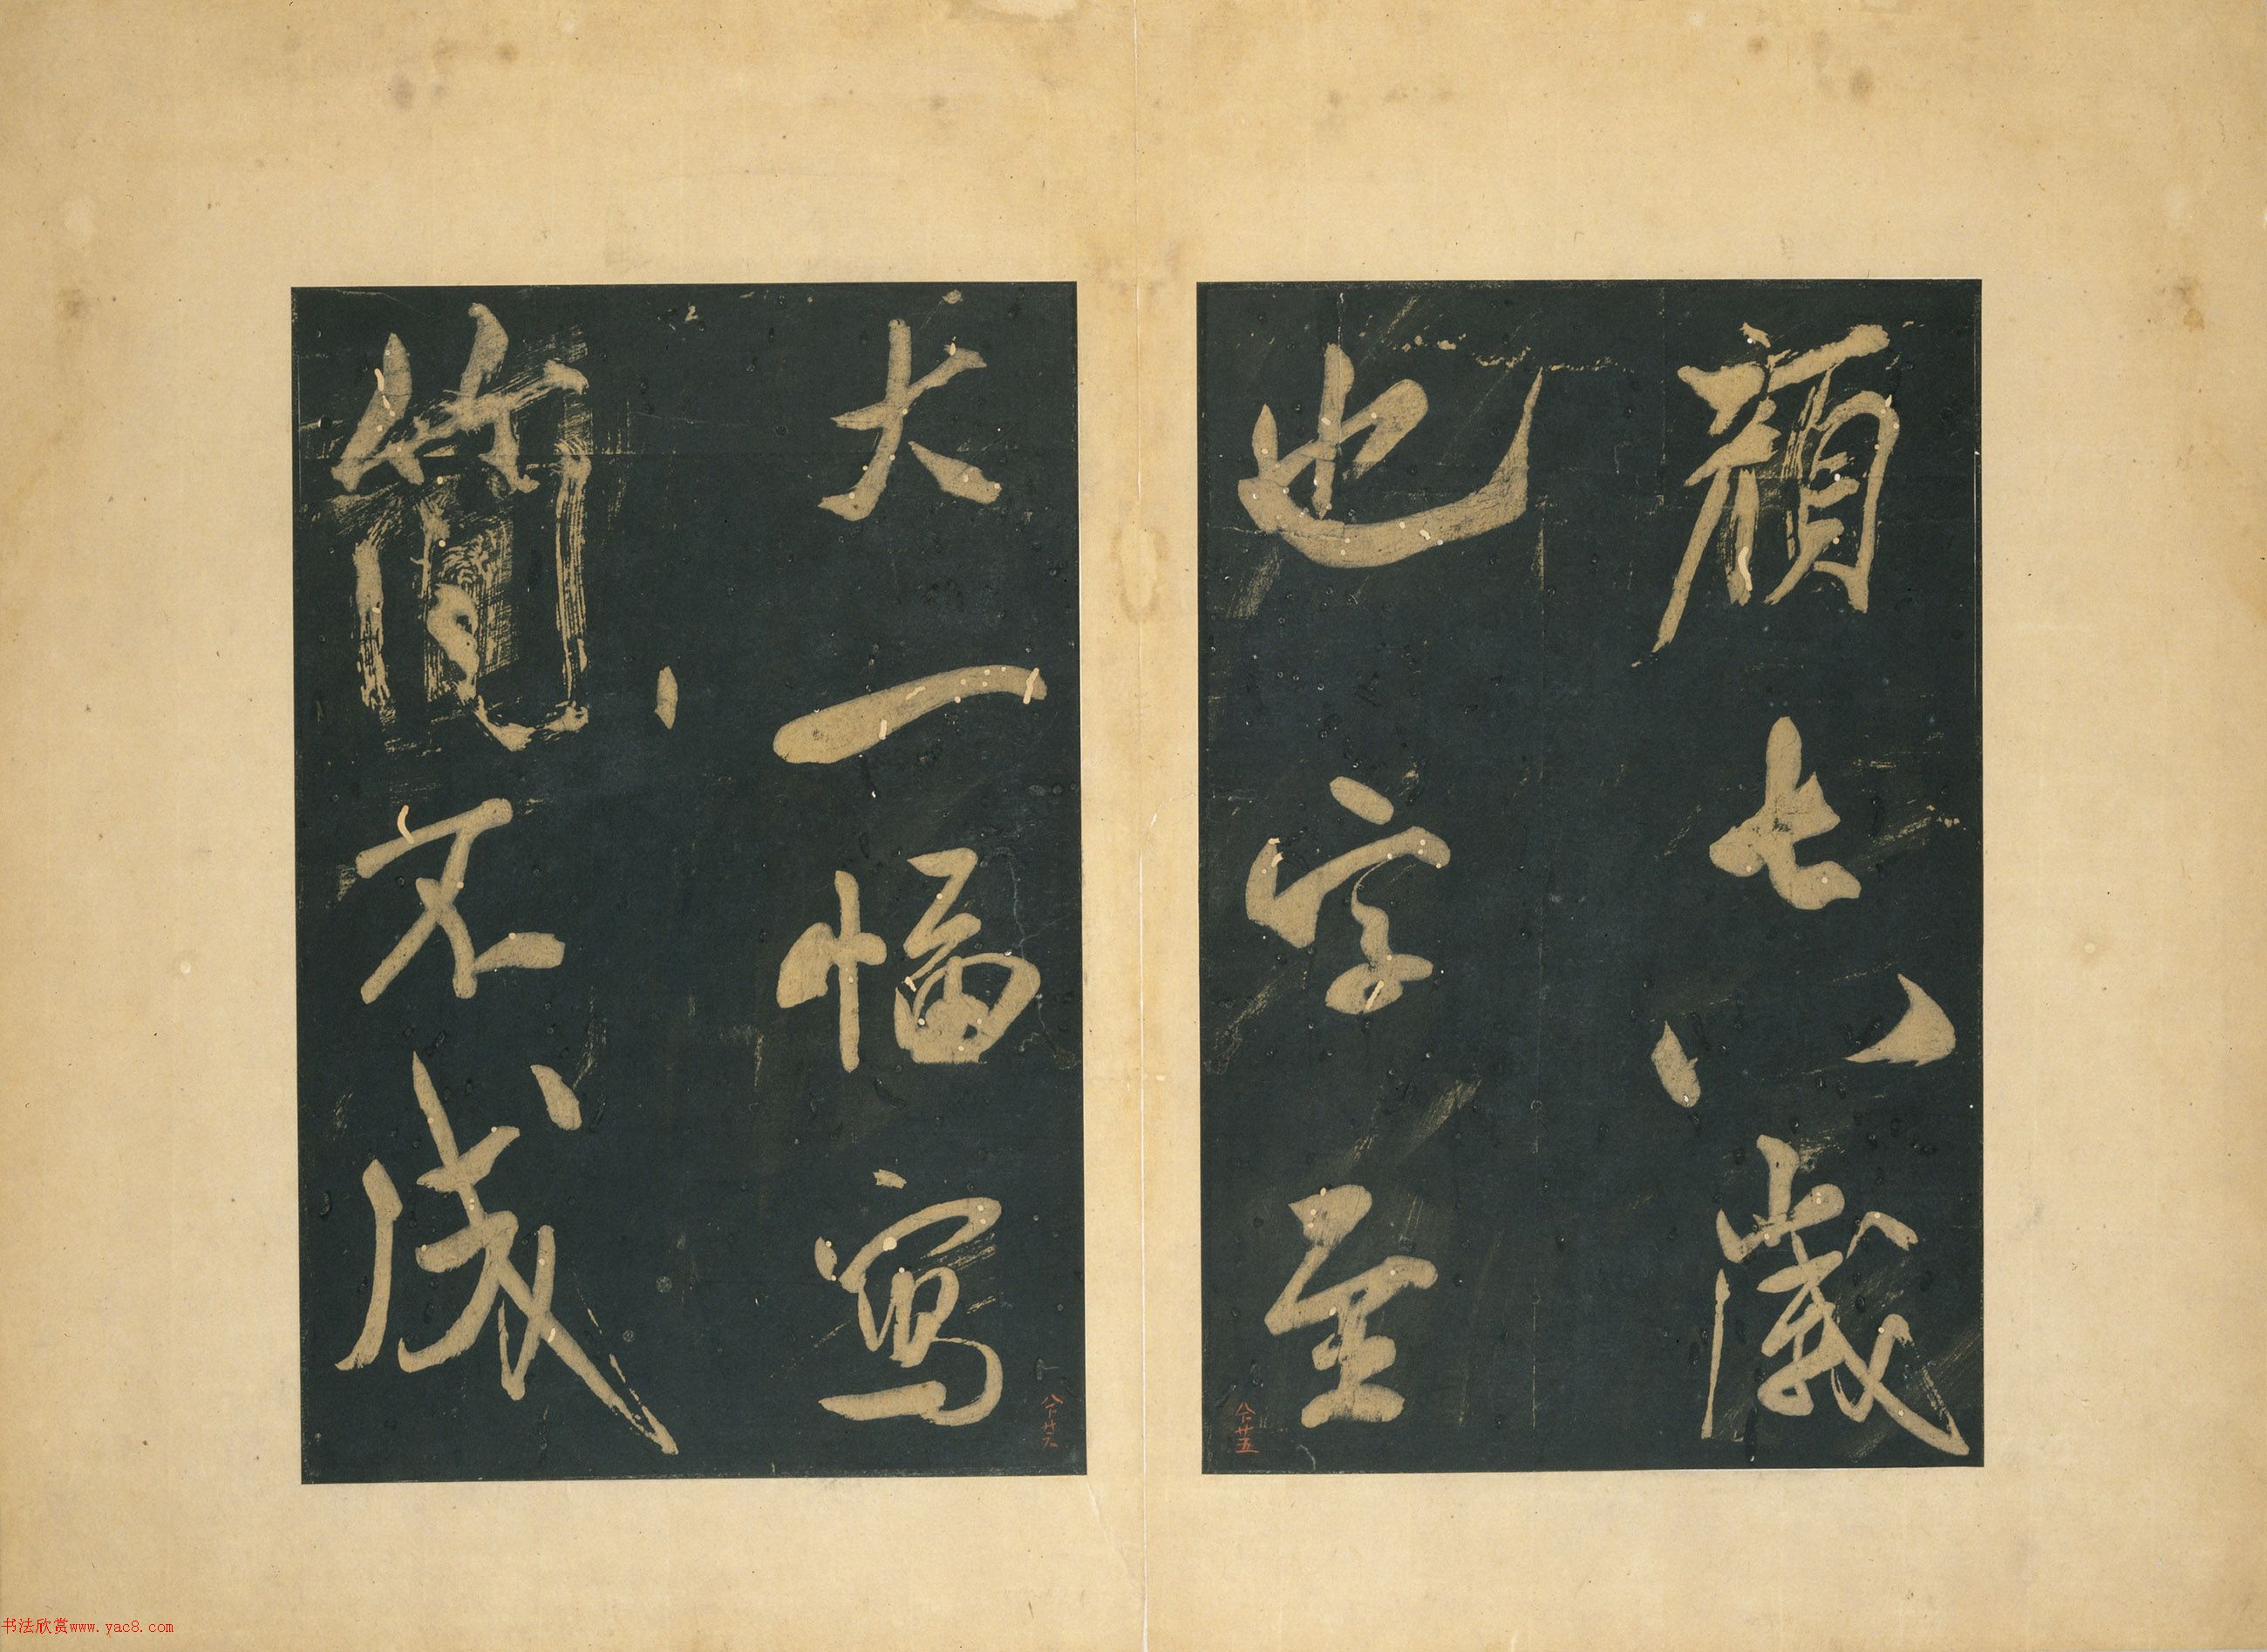 顔七八歲
也字至
八下廿五
大一幅寫
八下廿六
簡不成
书法欣赏www.yac8.com